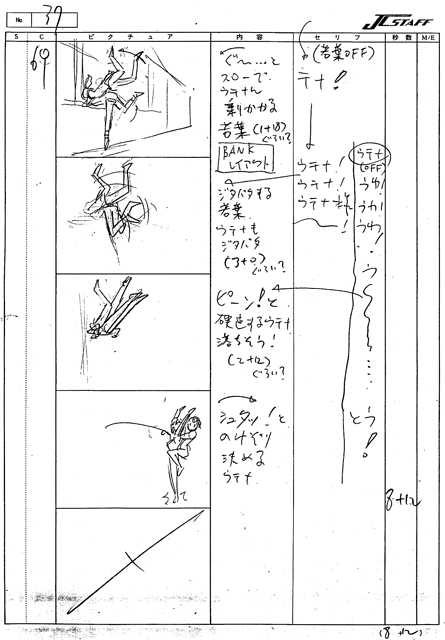 No. 37
J.C.STAFF
S
C
ピクチュア
内容
セリフ
秒数
M/E
69
ぐ〜…と
スローで
ウテナん
若葉(1+18)
ぐらい?
BANK
レイアウト
ジタバタする
若葉
ウテナも
ジタバタ
(3+0)
ぐらい?
ピーン!と
硬直するウテナ
落ちそう!
(2+12)
ぐらい?
シュタッ!と
のけぞり
決める
ウテナ
(若葉OFF)
テナ!
ウテナ!
ウテナ!
ウテナ
!
ウテナ
(OFF)
うわ!
うわ!
うわ!
う〜〜……
とう
!
8+12
(8+12)